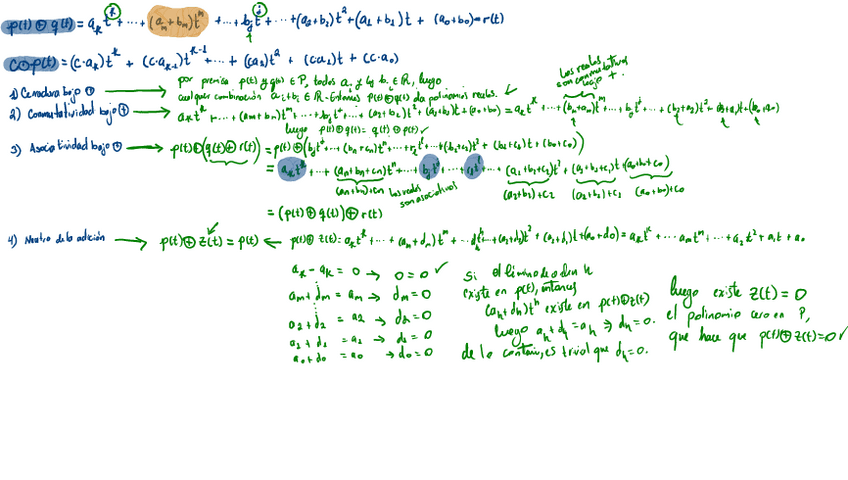 p(t) ⊕ q(t) = a_k t^k + ... + (a_m + b_m) t^m + ... + b_j t^j + ... + (a_2 + b_2) t^2 + (a_1 + b_1) t + (a_0 + b_0) = r(t)
c ⊙ p(t) = (c·a_k) t^k + (c·a_{k-1}) t^{k-1} + ... + (c a_2) t^2 + (c a_1) t + (c·a_0)
1) Cerradura bajo ⊕ → por premisa p(t) y q(t) ∈ P, todos a_i y b_i ∈ ℝ, luego
cualquier combinación a_i + b_i ∈ ℝ. Entonces p(t) ⊕ q(t) da polinomios reales. ✓
los reales son conmutativos bajo +.
2) Conmutatividad bajo ⊕ → a_k t^k + ... + (a_m + b_m) t^m + ... + b_j t^j + ... + (a_2 + b_2) t^2 + (a_1 + b_1) t + (a_0 + b_0) = a_k t^k + ... + (b_m + a_m) t^m + ... + b_j t^j + ... + (b_2 + a_2) t^2 + (b_1 + a_1) t + (b_0 + a_0)
luego p(t) ⊕ q(t) = q(t) ⊕ p(t) ✓
3) Asociatividad bajo ⊕ → p(t) ⊕ (q(t) ⊕ r(t)) = p(t) ⊕ (b_j t^j + ... + (b_n + c_n) t^n + ... + (b_2 + c_2) t^2 + (b_1 + c_1) t + (b_0 + c_0))
= a_k t^k + ... + (a_n + b_n + c_n) t^n + ... + b_j t^j + ... + (a_2 + b_2 + c_2) t^2 + (a_1 + b_1 + c_1) t + (a_0 + b_0 + c_0)
(a_n + b_n) + c_n los reales son asociativos (a_2 + b_2) + c_2 (a_1 + b_1) + c_1 (a_0 + b_0) + c_0
= (p(t) ⊕ q(t)) ⊕ r(t)
4) Neutro de la adición → p(t) ⊕ z(t) = p(t) ← p(t) ⊕ z(t) = a_k t^k + ... + (a_m + d_m) t^m + ... d_h t^h + ... + (a_2 + d_2) t^2 + (a_1 + d_1) t + (a_0 + d_0) = a_k t^k + ... a_m t^m + ... + a_2 t^2 + a_1 t + a_0
a_k - a_k = 0 → 0 = 0 ✓
a_m + d_m = a_m → d_m = 0
a_2 + d_2 = a_2 → d_2 = 0
a_1 + d_1 = a_1 → d_1 = 0
a_0 + d_0 = a_0 → d_0 = 0
Si el término de orden h
existe en p(t), entonces
(a_h + d_h) t^h existe en p(t) ⊕ z(t)
luego a_h + d_h = a_h ⇒ d_h = 0.
de lo contrario, es trivial que d_h = 0.
luego existe z(t) = 0
el polinomio cero en P,
que hace que p(t) ⊕ z(t) = 0 ✓